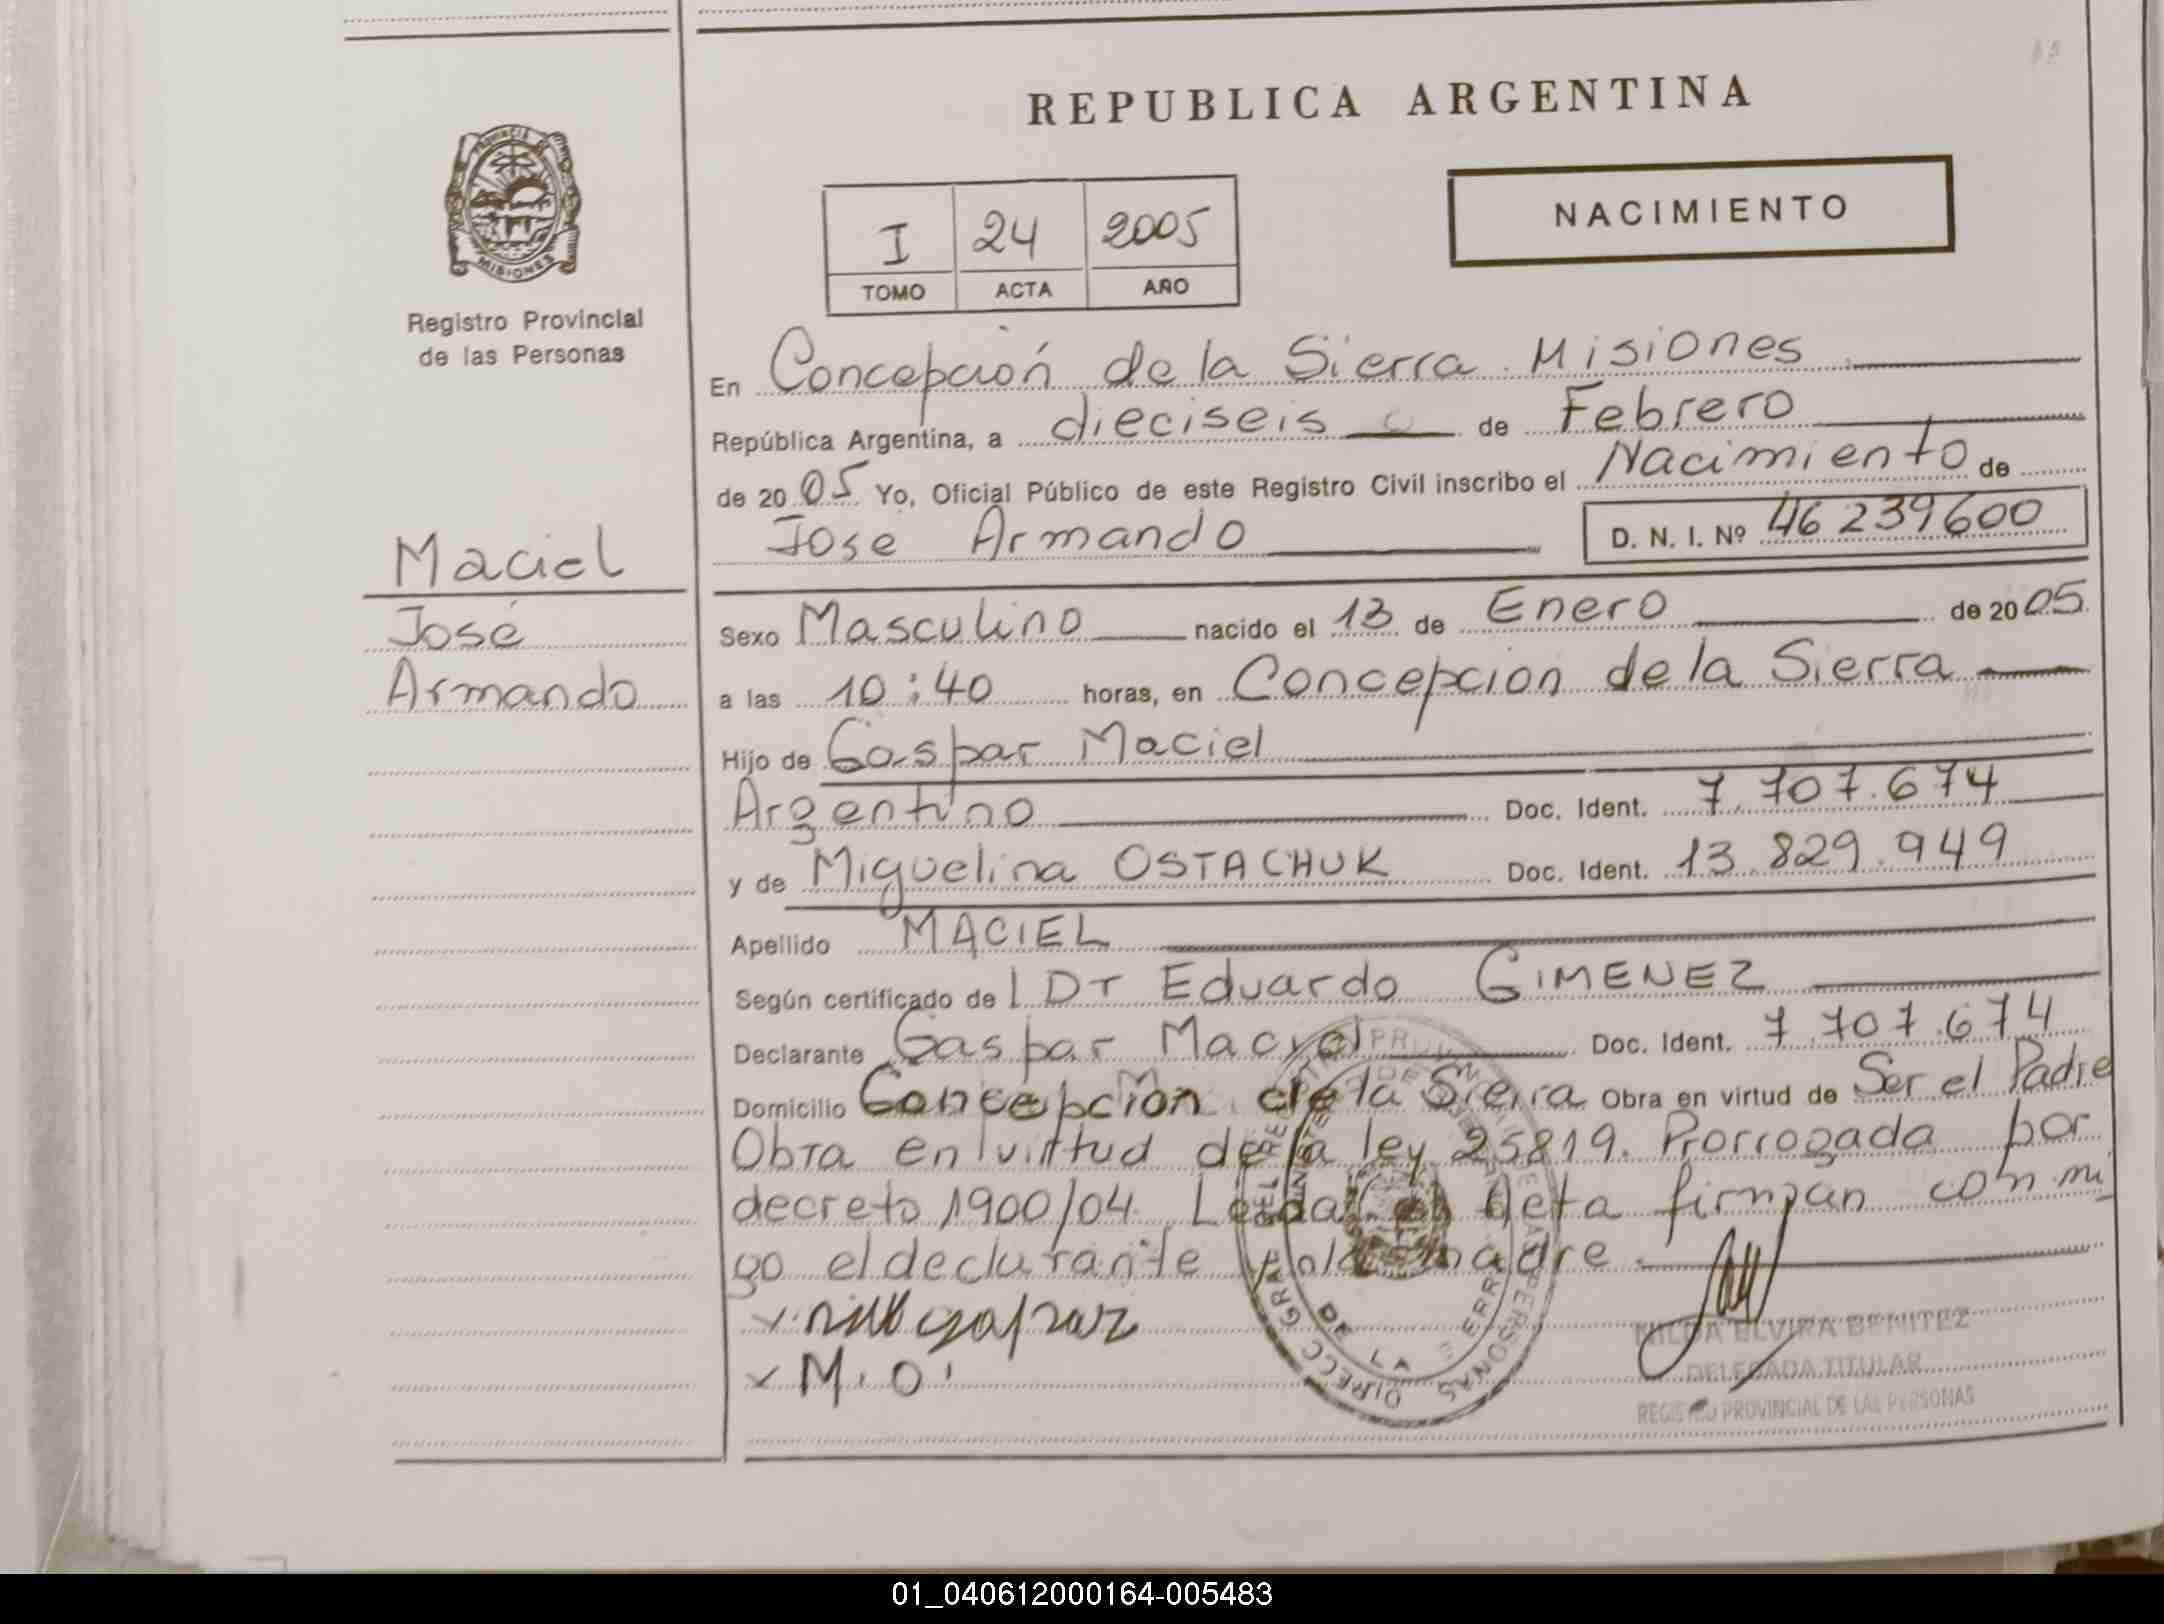 REPUBLICA ARGENTINA
PROVINCIA
MISIONES
Registro Provincial
de las Personas
I 24 2005
TOMO ACTA AÑO
NACIMIENTO
Maciel
José
Armando
En Concepción de la Sierra. Misiones
República Argentina, a dieciseis de Febrero
de 2005 Yo, Oficial Público de este Registro Civil inscribo el Nacimiento de
José Armando D. N. I. Nº 46 239600
Sexo Masculino nacido el 13 de Enero de 2005
a las 10:40 horas, en Concepcion de la Sierra
Hijo de Gaspar Maciel
Argentino Doc. Ident. 7.707.674
y de Miguelina OSTACHUK Doc. Ident. 13.829.949
Apellido MACIEL
Según certificado de DT Eduardo GIMENEZ
Declarante Gaspar Maciel Doc. Ident. 7.707.674
Domicilio Concepción de la Sierra Obra en virtud de Ser el Padre
Obra en virtud de la ley 25819. Prorrogada por
decreto 1900/04. Leida el Acta firman con mi
go el declarante y la madre.
gaspar
M.O.
DIRECC GRAL DEL PROVINCIAL DE LAS PERSONAS
DE LA
HILDA ELVIRA BENITEZ
DELEGADA TITULAR
REGISTRO PROVINCIAL DE LAS PERSONAS
01_040612000164-005483